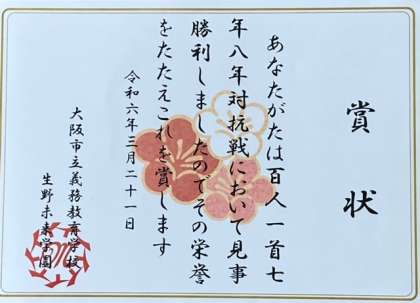 賞状
あなたがたは百人一首七
年八年対抗戦において見事
勝利しましたのでその栄誉
をたたえこれを賞します
令和六年三月二十一日
大阪市立義務教育学校
生野未来学園